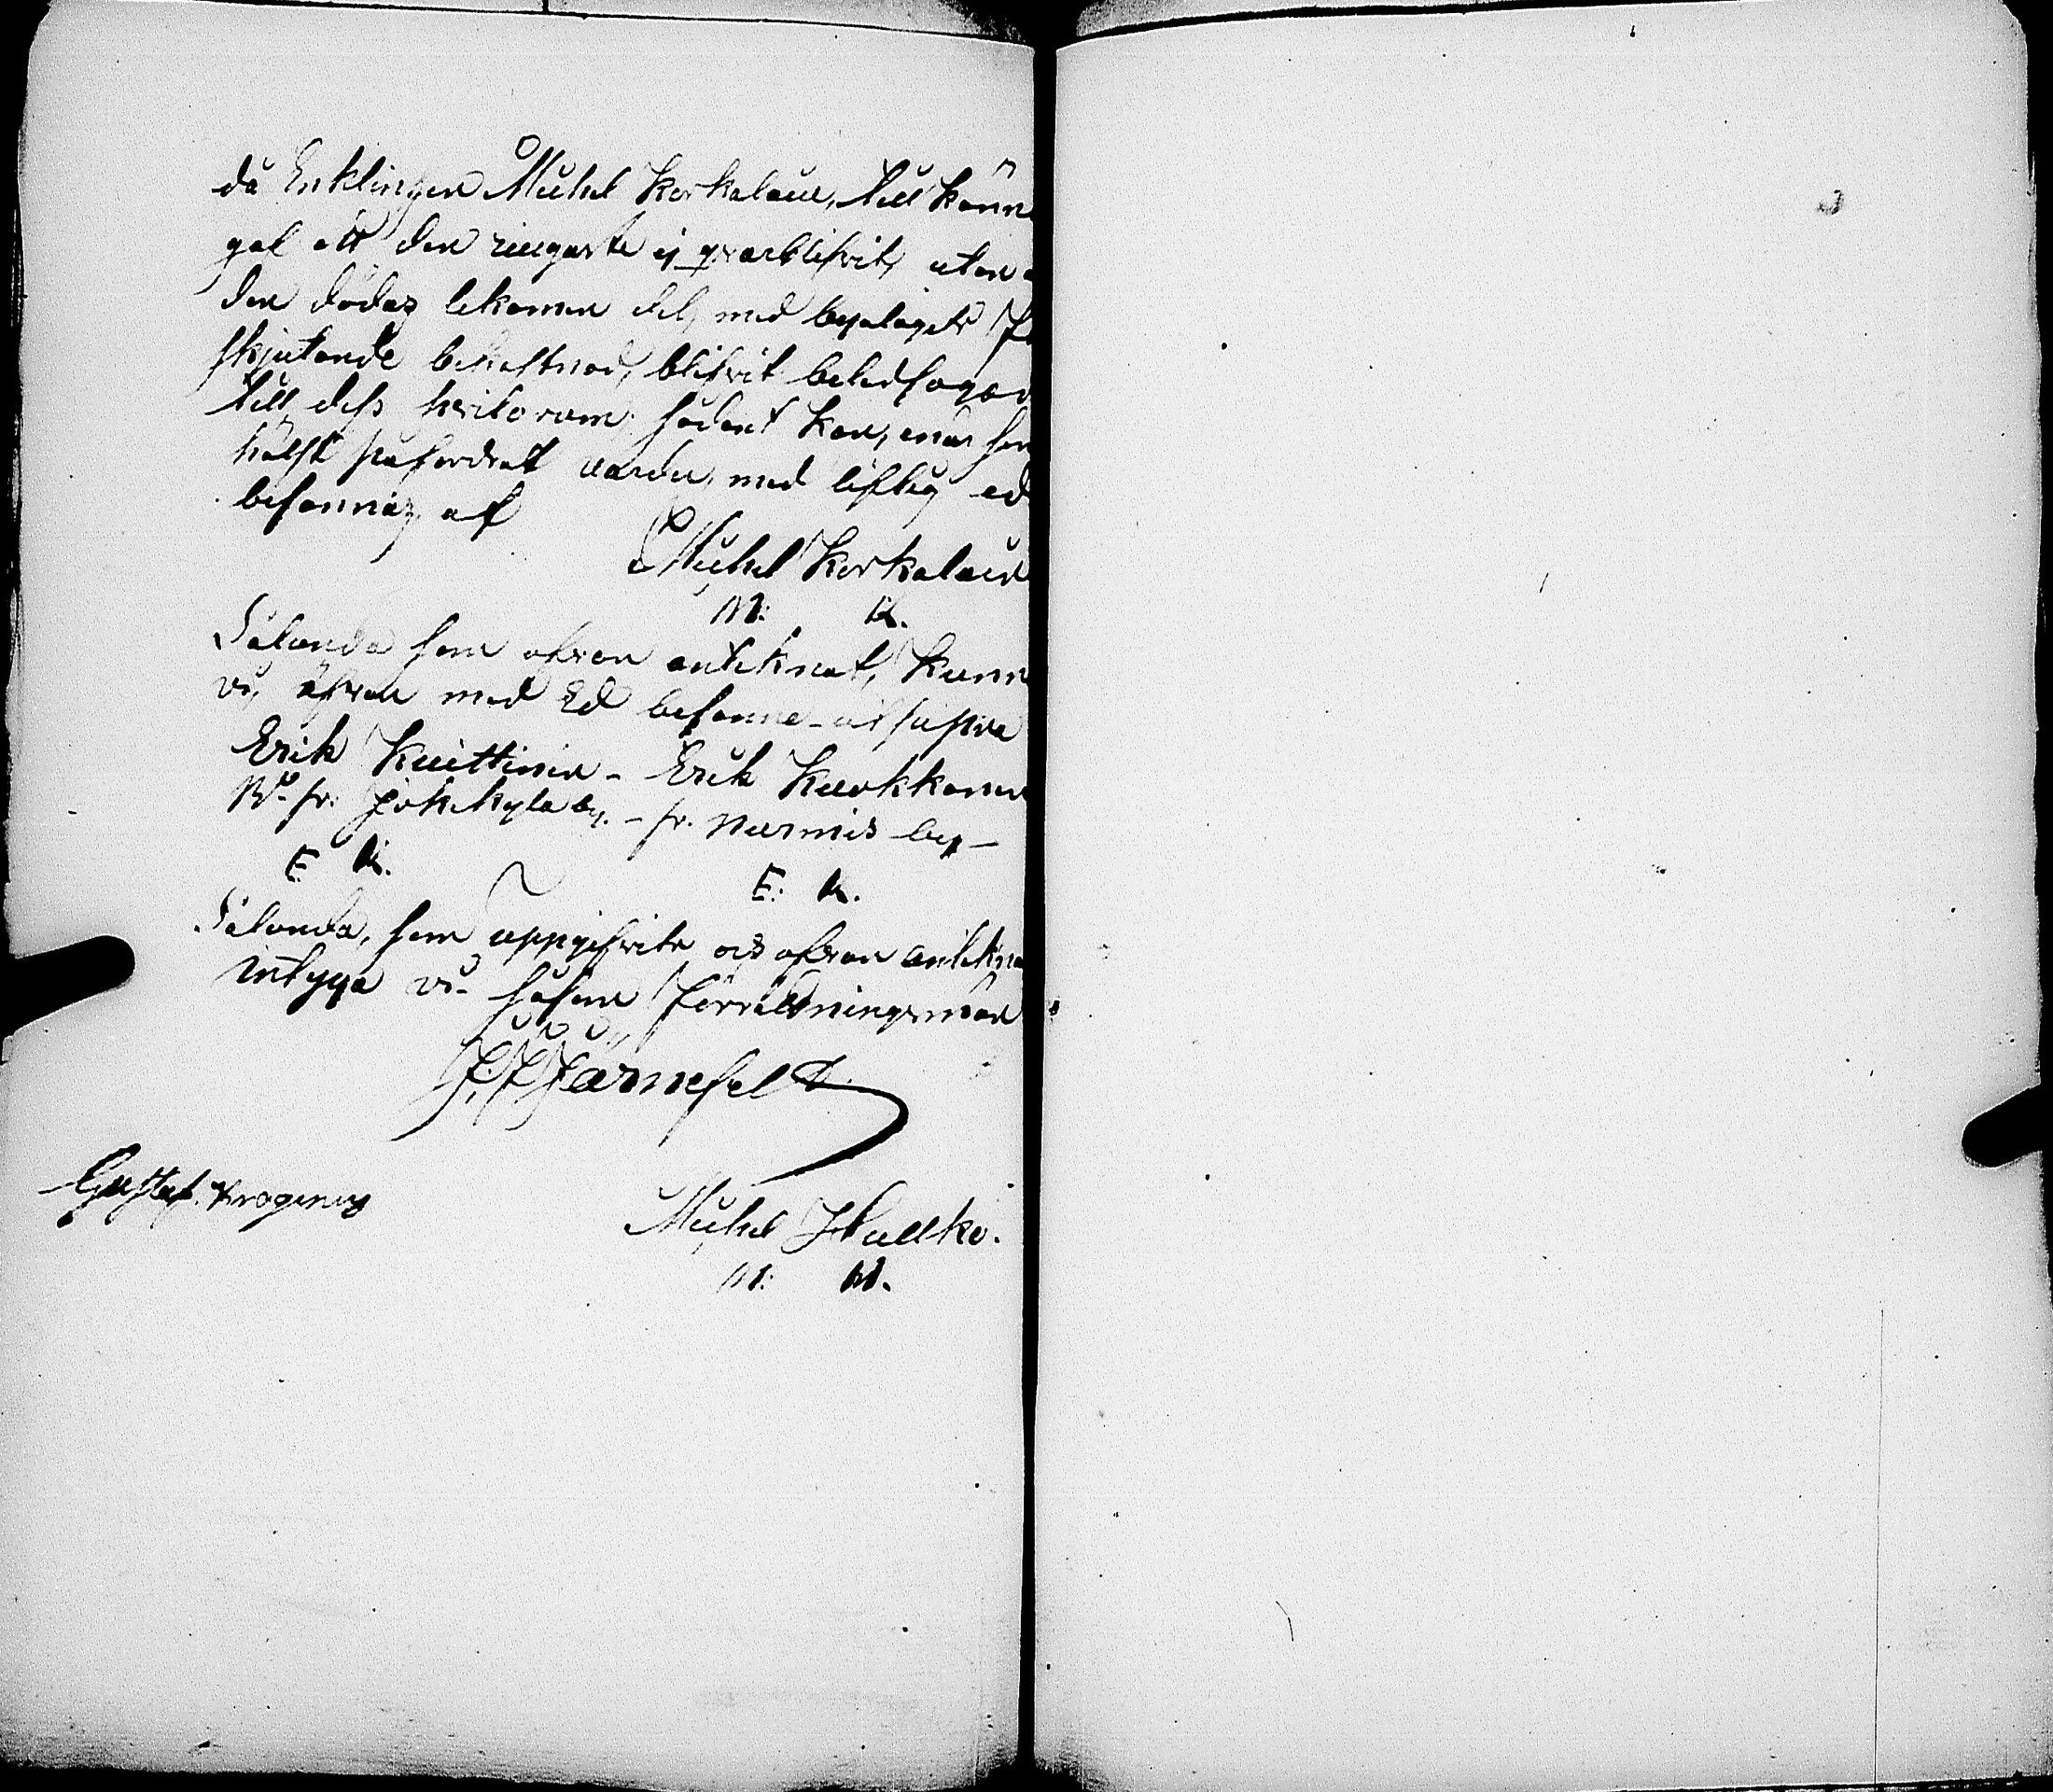 då Enklingen Michel Korkalain, till känn
gaf att den ringaste ej qvarblifvit, utan
den dödas lekamen del, med byalagets
skjutande bekostnad, blifvit beledsagad
till dess hvilorum. sådant kan, enär som
hälst påfordrat varder, med liflig ed
besannas, af
Michel Korkalain
M: K.
Sålunda som ofvan anteknat, kunn
vi, äfven med Ed besanna
Erik Kuittinen - Erik Kurkkonen
fr: Jokikylä by. - fr. Nurmis by -
E K.
E: K.
Sålunda, som uppgifvits och ofvan antekna
intyga vi - såsom Förrättningsmän
J. F. Järnefelt
Gustaf. Krogerus
Michel Hallko.
M: H.